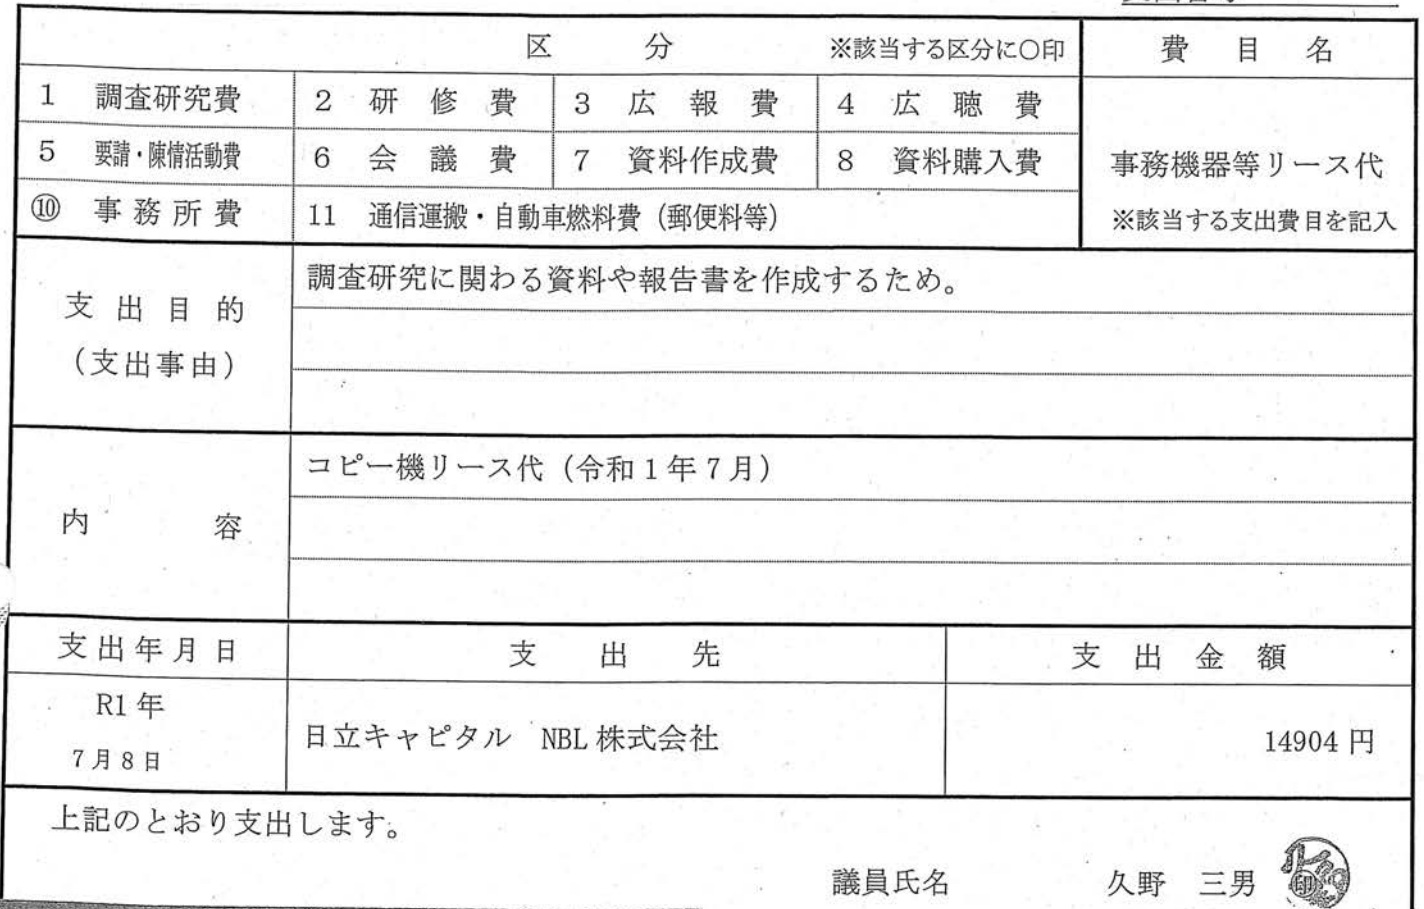 区 分 ※該当する区分に〇印 費 目 名
1 調査研究費 2 研 修 費 3 広 報 費 4 広 聴 費
5 要請・陳情活動費 6 会 議 費 7 資料作成費 8 資料購入費 事務機器等リース代
⑩ 事 務 所 費 11 通信運搬・自動車燃料費（郵便料等） ※該当する支出費目を記入
支 出 目 的
（支出事由）
調査研究に関わる資料や報告書を作成するため。
内 容
コピー機リース代（令和1年7月）
支出年月日 支 出 先 支 出 金 額
R1年
7月8日
日立キャピタル NBL株式会社 14904円
上記のとおり支出します。
議員氏名 久野 三男 印